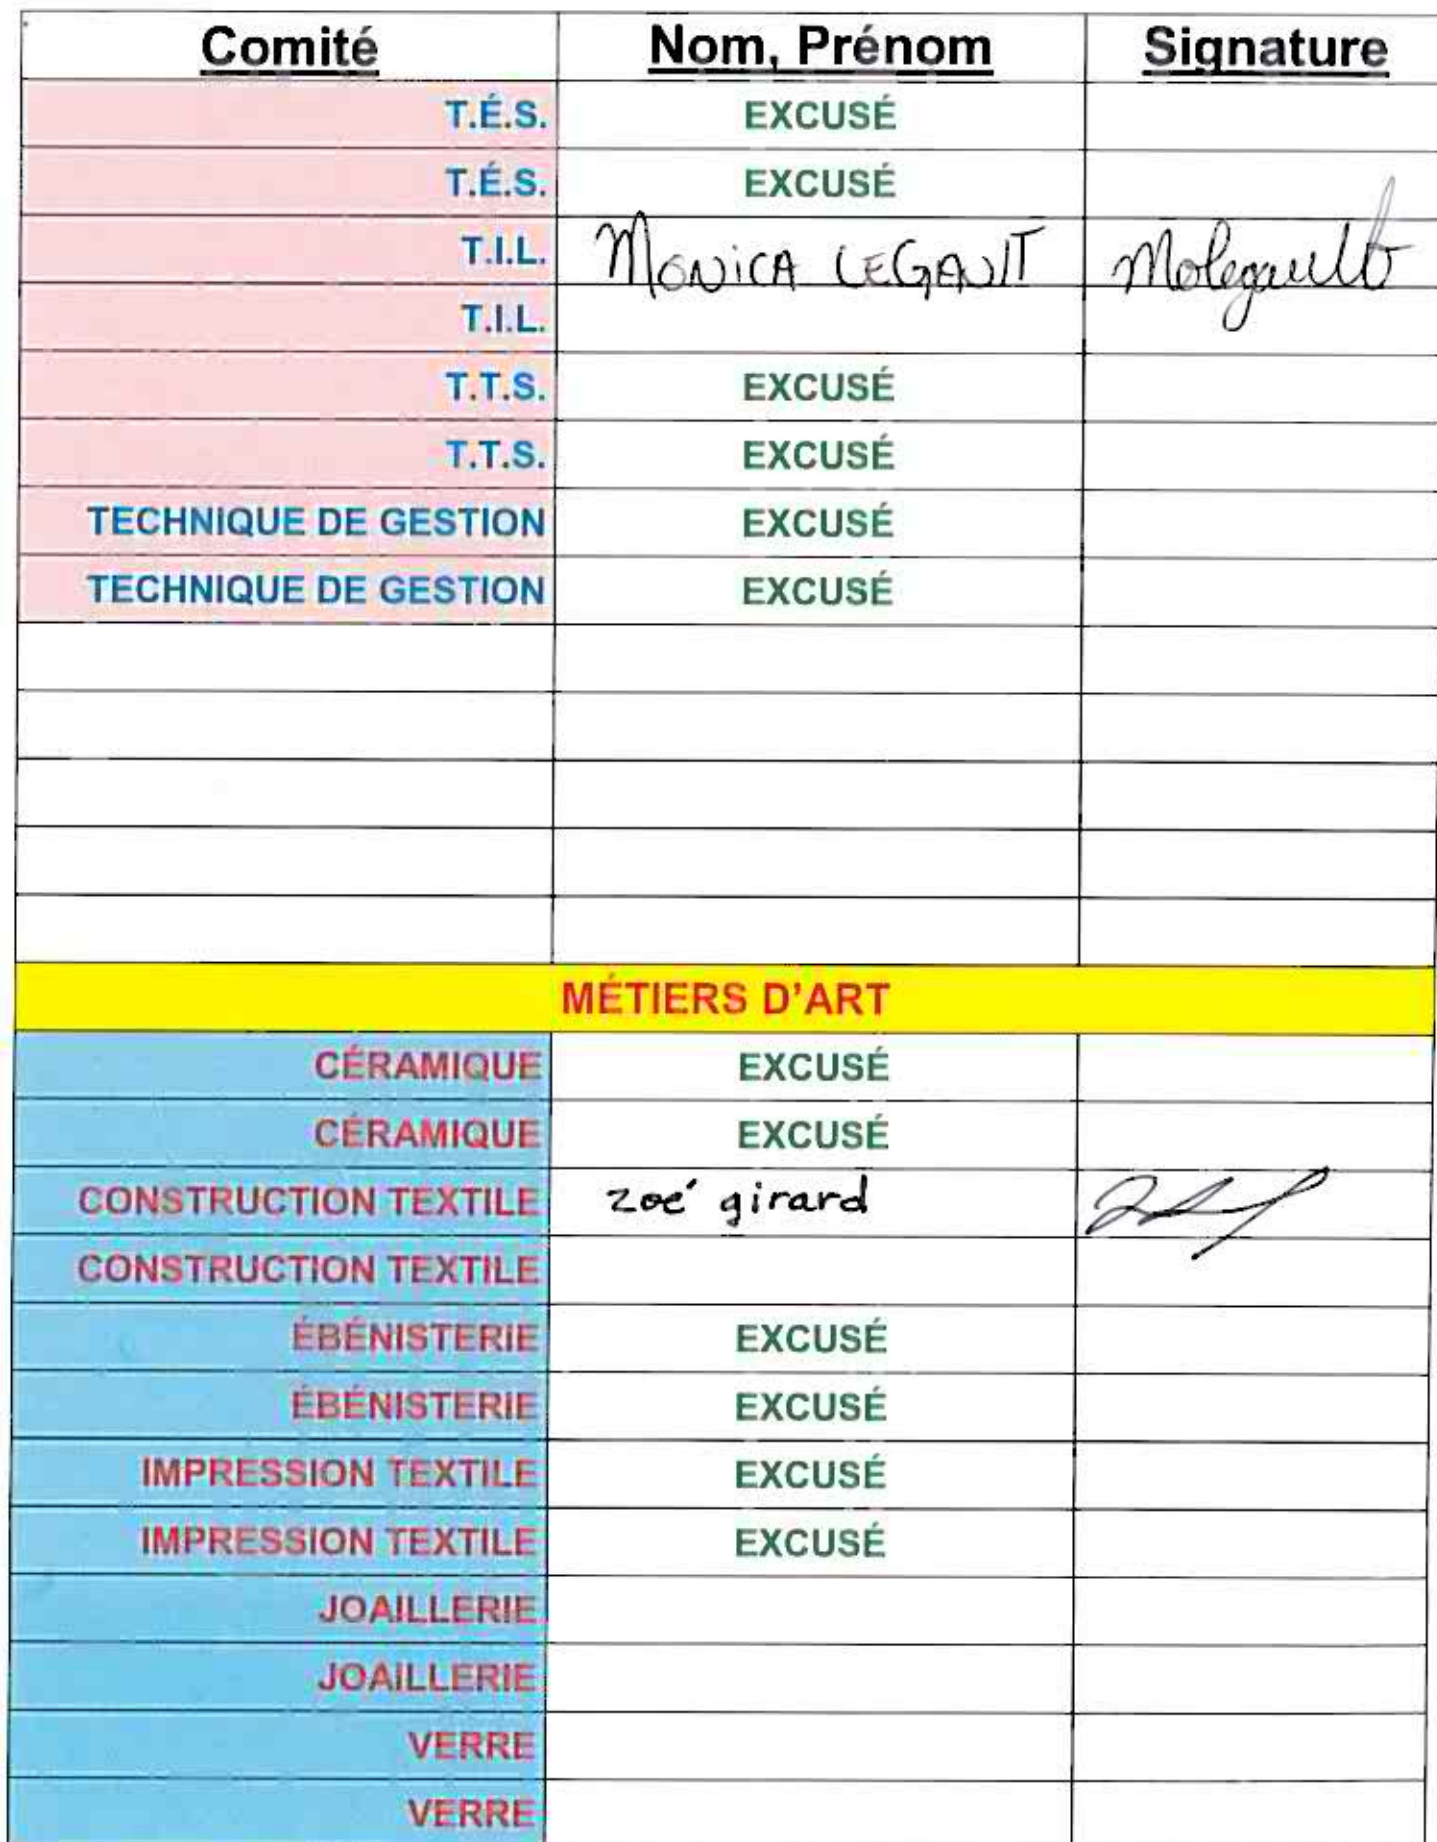 Comité Nom, Prénom Signature
T.É.S. EXCUSÉ
T.É.S. EXCUSÉ
T.I.L. MONICA LEGAULT Molegault
T.I.L.
T.T.S. EXCUSÉ
T.T.S. EXCUSÉ
TECHNIQUE DE GESTION EXCUSÉ
TECHNIQUE DE GESTION EXCUSÉ
MÉTIERS D'ART
CÉRAMIQUE EXCUSÉ
CÉRAMIQUE EXCUSÉ
CONSTRUCTION TEXTILE zoé girard
CONSTRUCTION TEXTILE
ÉBÉNISTERIE EXCUSÉ
ÉBÉNISTERIE EXCUSÉ
IMPRESSION TEXTILE EXCUSÉ
IMPRESSION TEXTILE EXCUSÉ
JOAILLERIE
JOAILLERIE
VERRE
VERRE